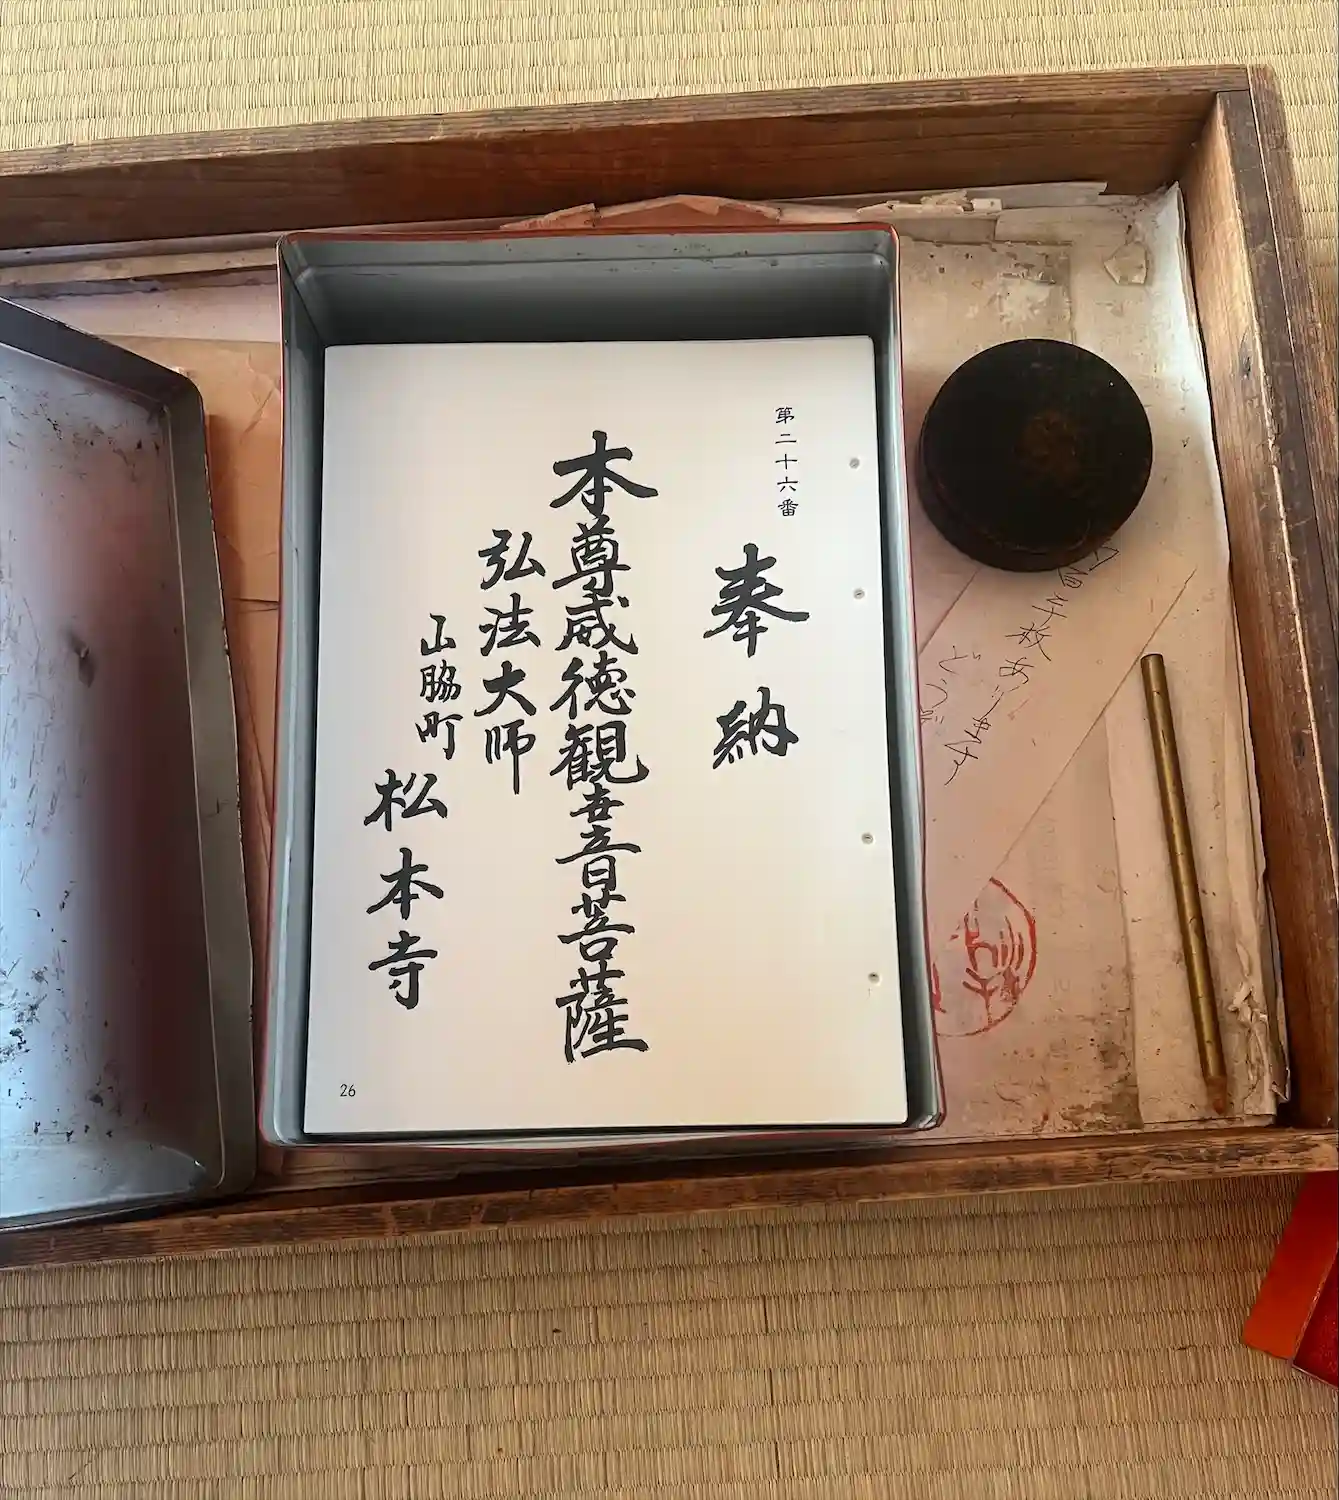 第二十六番
奉納
本尊威徳観世音菩薩
弘法大師
山脇町
松本寺
26
枚あります
どうぞ